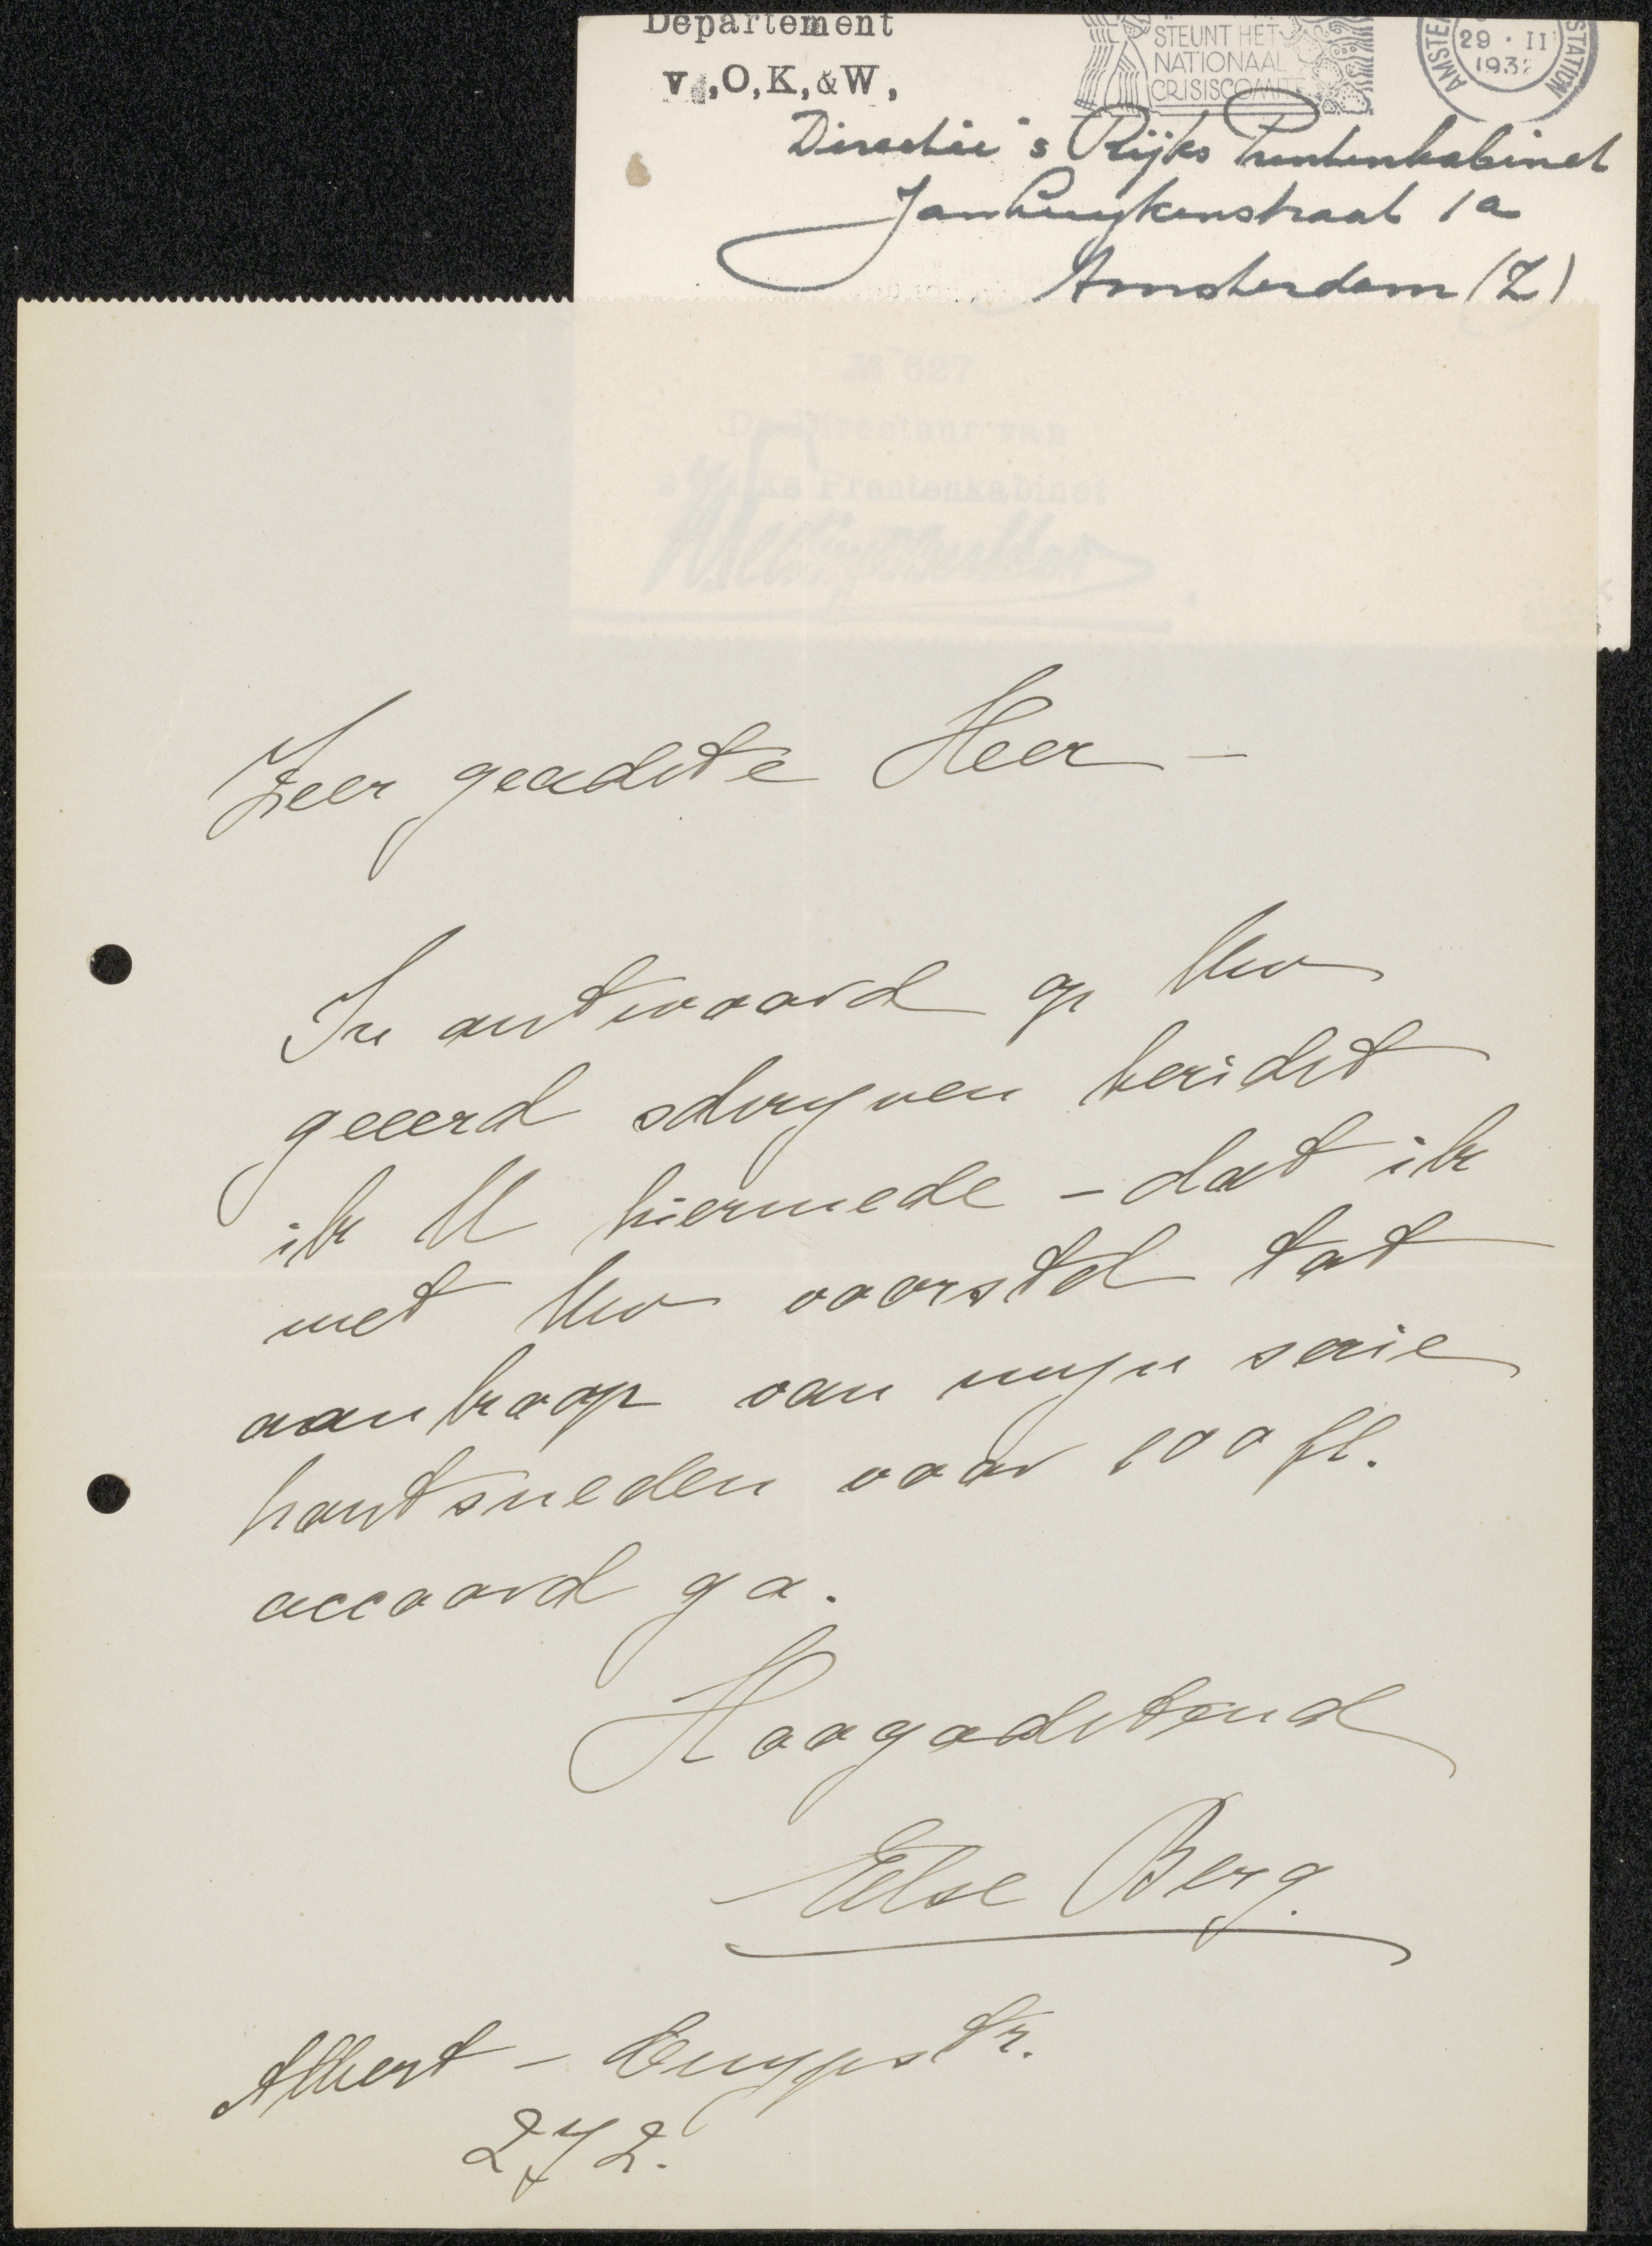 Departement
v.,O,K,&W,
STEUNT HET
NATIONAAL
CRISISCOMITE
29 · II
1932
STATION
Directie 's Rijks Prentenkabinet
Jan Luykenstraat 1a
Amsterdam (Z)
№ 627
De Directeur van
's Rijks Prentenkabinet
Zeer geachte Heer —
In antwoord op Uw
geeerd schryven bericht
ik U hiermede - dat ik
met Uw voorstel tot
aankoop van myn serie
houtsneden voor 100 fl.
accoord ga.
Hoogachtend
Else Berg.
Albert - Cuypstr.
272.